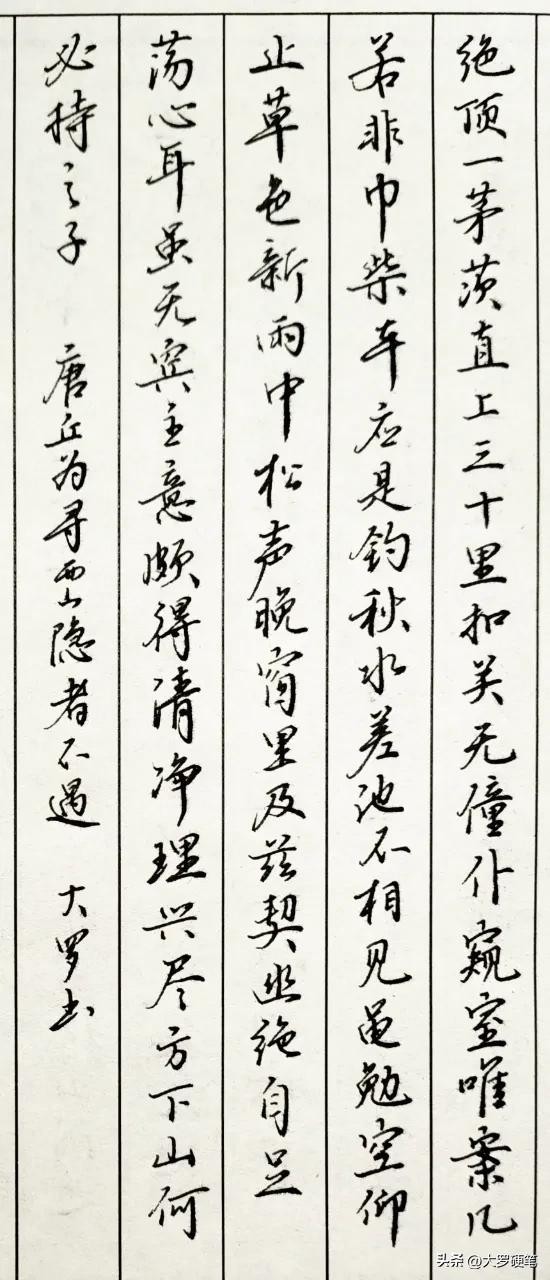 绝顶一茅茨直上三十里扣关无僮仆窥室唯案几
若非巾柴车应是钓秋水差池不相见黾勉空仰
止草色新雨中松声晚窗里及兹契幽绝自足
荡心耳虽无宾主意颇得清净理兴尽方下山何
必持之子 唐丘为寻西山隐者不遇 大罗书
头条 @大罗硬笔